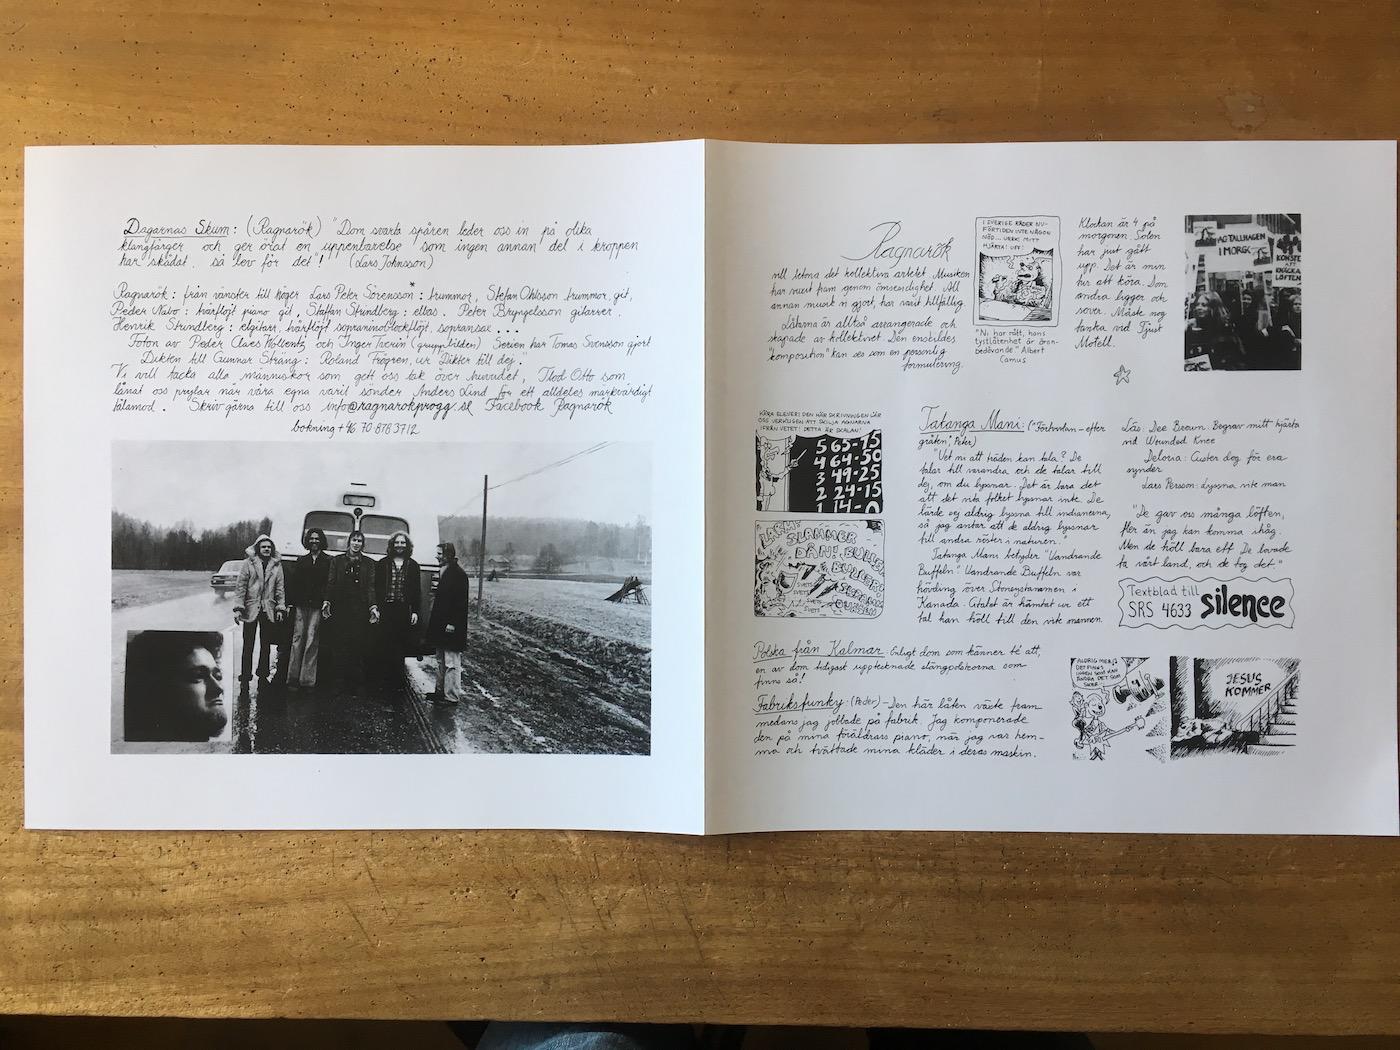 Dagarnas Skum: (Ragnarök) "Dom svarta spåren leder oss in på olika
klangfärger och ger örat en uppenbarelse som ingen annan del i kroppen
har skådat. så lev för det"! (Lars Johnsson)
Ragnarök: från vänster till höger Lars Peter Sörensson*: trummor, Stefan Ohlsson trummor, git,
Peder Nabo: tvärflöjt piano git, Staffan Strindberg: elbas. Peter Bryngelsson gitarrer.
Henrik Strindberg: elgitarr, tvärflöjt, sopraninoblockflöjt, sopransax ...
Foton av Peder Claes Holbentz och Inger (gruppbilden) Serien har Tomas Svensson gjort
Dikten till Gunnar Sträng: Roland Frögren, ur "Dikter till dej."
Vi vill tacka alla människor som gett oss tak över huvudet, Otto som
lånat oss prylar när våra egna varit sönder Anders Lind för ett alldeles märkvärdigt
tålamod. Skriv gärna till oss info@ragnarokprogg.se Facebook Ragnarök
bokning +46 70 878 3712
Ragnarök
vill betona det kollektiva arbetet. Musiken
har vuxit fram genom ömsesidighet. All
annan musik vi gjort, har varit tillfällig.
Låtarna är alltså arrangerade och
skapade av kollektivet. Den enskildes
"komposition" kan ses som en personlig
formulering.
I SVERIGE RÅDER NU-
FÖRTIDEN INTE NÅGON
NÖD... VERKE MITT
HJÄRTA! UFF!
"Ni har rätt, hans
tystlåtenhet är öron-
bedövande." Albert
Camus
Klockan är 4 på
morgonen. Solen
har just gått
upp. Det är min
tur att köra. Dom
andra ligger och
sover. Måste nog
tanka vid Tjust
Motell.
TALLHAGEN
I MORGO
KONSTE
ATT
KNÄCKA
LÖFTEN
KÄRA ELEVER! DEN HÄR SKRIVNINGEN LÄR
OSS VERKLIGEN ATT SKILJA AGNARNA
IFRÅN VETET! DETTA ÄR SKALAN!
5 65-75
4 64-50
3 49-25
2 24-15
1 14-0
LARM!
SLAMMER
DÅN! BULLER
BULLER!
SVETS
SVETS
SVETS
Tatanga Mani: ("Förhandlan - efter
gråten", Peter)
"Vet ni att träden kan tala? De
talar till varandra och de talar till
dej, om du lyssnar. Det är bara det
att det vita folket lyssnar inte. De
lärde sej aldrig lyssna till indianerna,
så jag antar att de aldrig lyssnar
till andra röster i naturen."
Tatanga Mani betyder "Vandrande
Buffeln." Vandrande Buffeln var
hövding över Stoneystammen i
Kanada. Citatet är hämtat ur ett
tal han höll till den vite mannen.
Läs: Dee Brown: Begrav mitt hjärta
vid Wounded Knee
Deloria: Custer dog för era
synder
Lars Persson: Lyssna vite man
"De gav oss många löften,
fler än jag kan komma ihåg.
Men de höll bara ett. De lovade
ta vårt land, och de tog det."
Textblad till
SRS 4633 silence
Polska från Kalmar: Enligt dom som känner té att,
en av dom tidigast upptecknade slängpolskorna som
finns så!
Fabriksfunky: (Peder) - Den här låten växte fram
medans jag jobbade på fabrik. Jag komponerade
den på mina föräldrars piano, när jag var hem-
ma och tvättade mina kläder i deras maskin.
ALDRIG MER
DET FINNS
INGEN SOM KAN
ÄNDRA DET SOM
SKER
JESUS
KOMMER